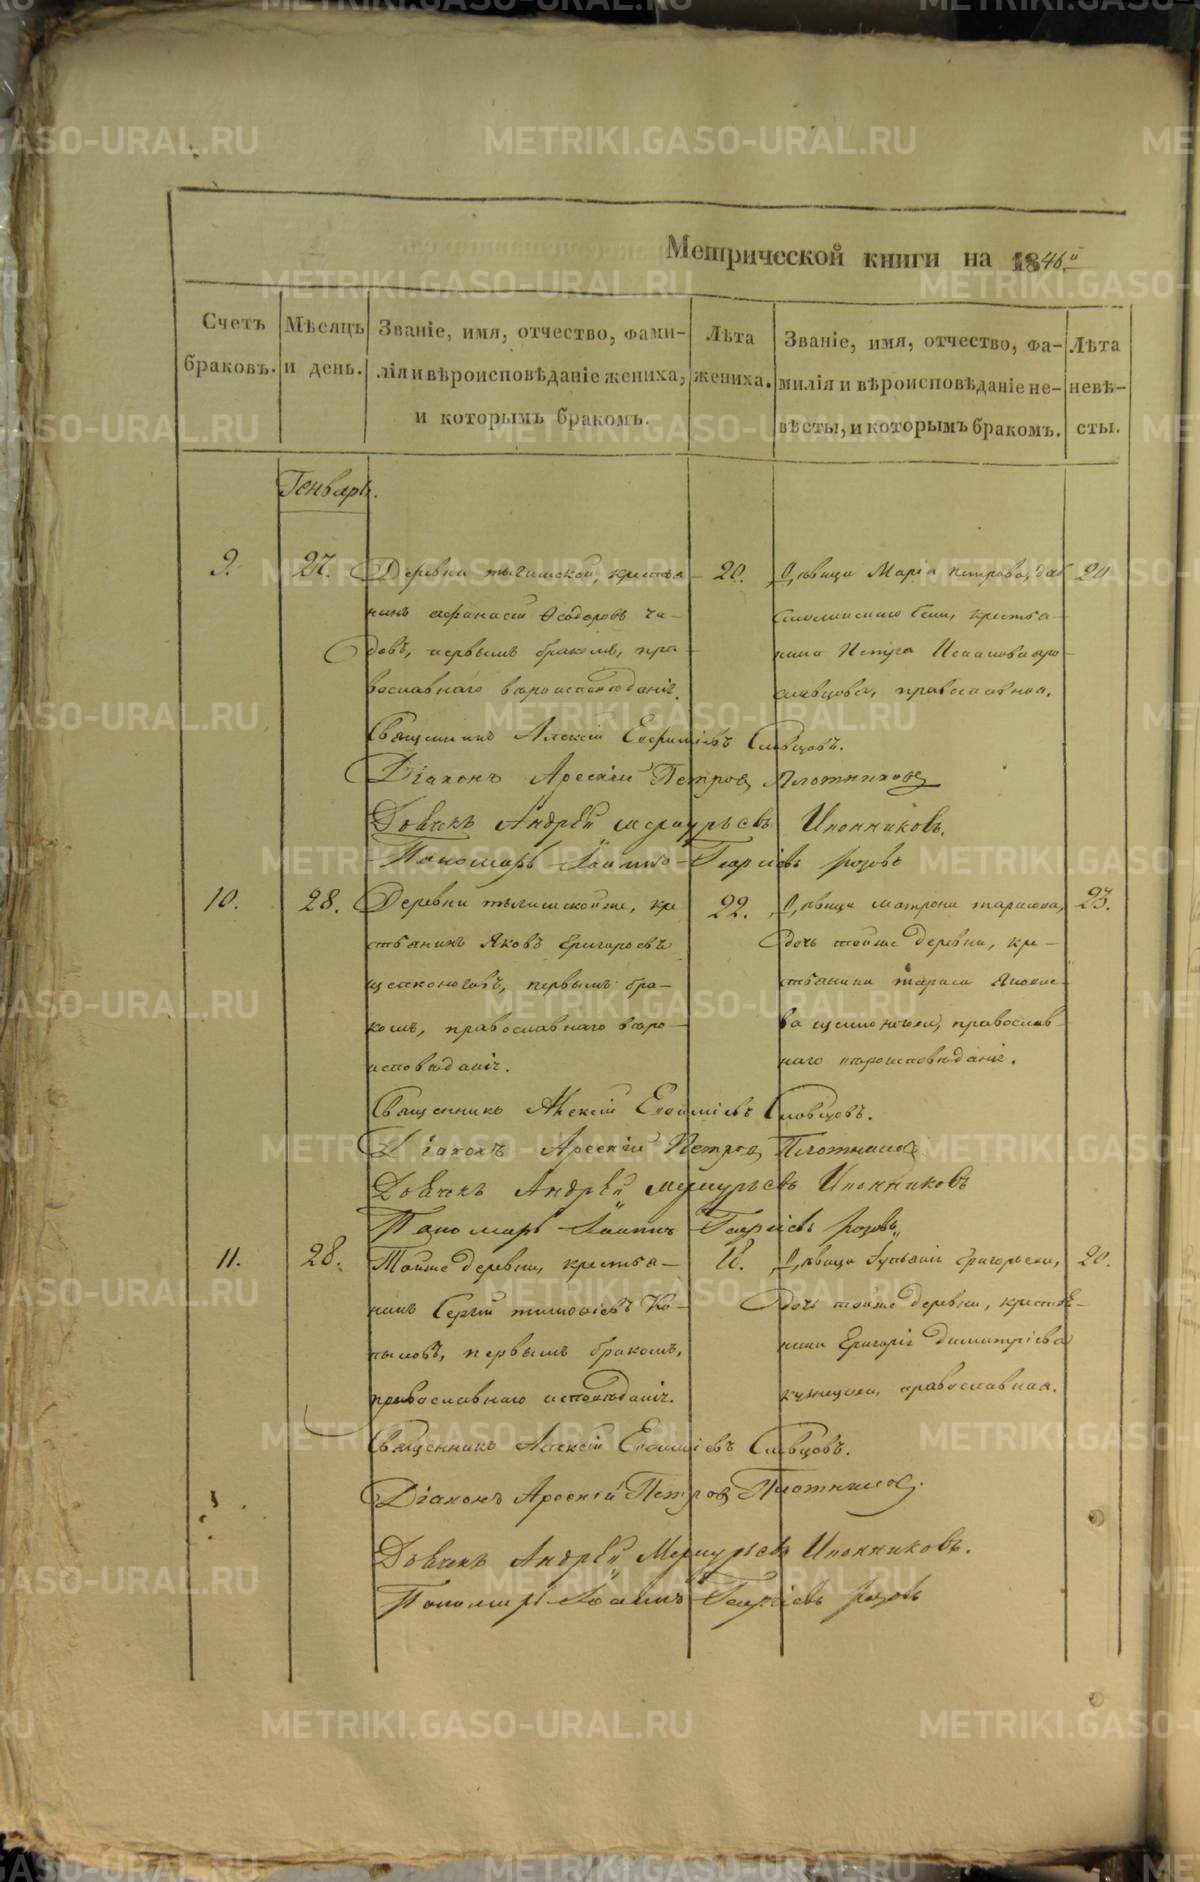 Метрической книги на 1846.й
Счетъ браковъ.
Мѣсяцъ и день.
Званіе, имя, отчество, фами-
лія и вѣроисповѣданіе жениха,
и которымъ бракомъ.
Лѣта
жениха.
Званіе, имя, отчество, фа-
милія и вѣроисповѣданіе не-
вѣсты, и которымъ бракомъ.
Лѣта
невѣ-
сты.
Генварь.
9.
27.
Деревни крестья-
нинъ Афанасій Ѳеодоровъ Ча-
довъ, первымъ бракомъ, пра-
вославнаго вѣроисповѣданія.
20.
Дѣвица Марія Петрова, дочь
села, крестья-
нина Петра
православная.
24
Священникъ Алексій Евфиміевъ Словцовъ.
Діаконъ Арсеній Петровъ Плотниковъ
Дьячекъ Андрей Меркурьевъ Иконниковъ.
Пономарь Іоаннъ Георгіевъ Розовъ
10.
28.
Деревни же, кре-
стьянинъ Яковъ Григорьевъ
первымъ бра-
комъ, православнаго вѣро-
исповѣданія.
22.
Дѣвица Матрона Тарасова,
дочь тойже деревни, кре-
стьянина Тараса Яковле-
ва православ-
наго вѣроисповѣданія.
23.
Священникъ Алексій Евфиміевъ Словцовъ.
Діаконъ Арсеній Петровъ Плотниковъ
Дьячекъ Андрей Меркурьевъ Иконниковъ
Пономарь Іоаннъ Георгіевъ Розовъ
11.
28.
Тойже деревни, крестья-
нинъ Сергій Тимофіевъ Ко-
пыловъ, первымъ бракомъ,
православнаго исповѣданія.
18.
Дѣвица Григорьева,
дочь тойже деревни, крестья-
нина Григорія Димитріева
Кузнецова, православная.
20.
Священникъ Алексій Евфиміевъ Словцовъ.
Діаконъ Арсеній Петровъ Плотниковъ.
Дьячекъ Андрей Меркурьевъ Иконниковъ.
Пономарь Іоаннъ Георгіевъ Розовъ
METRIKI.GASO-URAL.RU